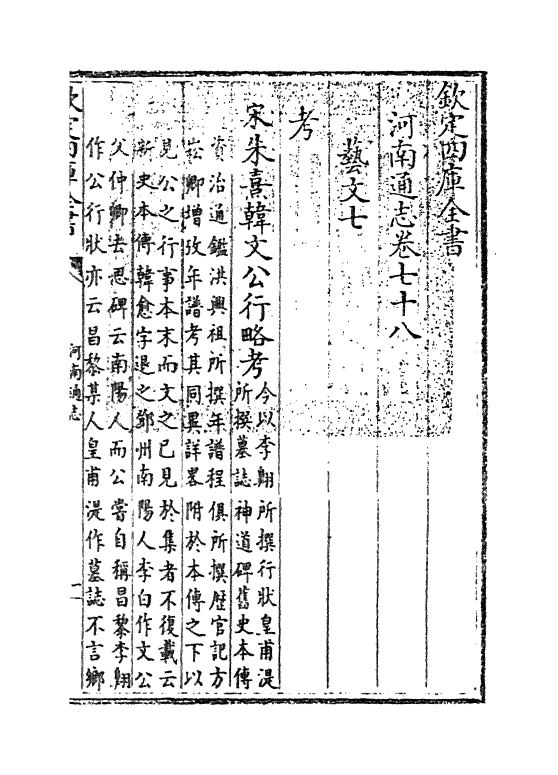 欽定四庫全書
河南通志卷七十八
藝文七
考
宋朱熹韓文公行略考
今以李翺所撰行狀皇甫湜
所撰墓誌神道碑舊史本傳
資治通鑑洪興祖所撰年譜程俱所撰歷官記方
崧卿增攷年譜考其同異詳畧附於本傳之下以
見公之行事本末而文之已見於集者不復載云
新史本傳韓愈字退之鄧州南陽人李白作文公
父仲卿去思碑云南陽人而公嘗自稱昌黎李翺
作公行狀亦云昌黎某人皇甫湜作墓誌不言鄉
欽定四庫全書
河南通志
一